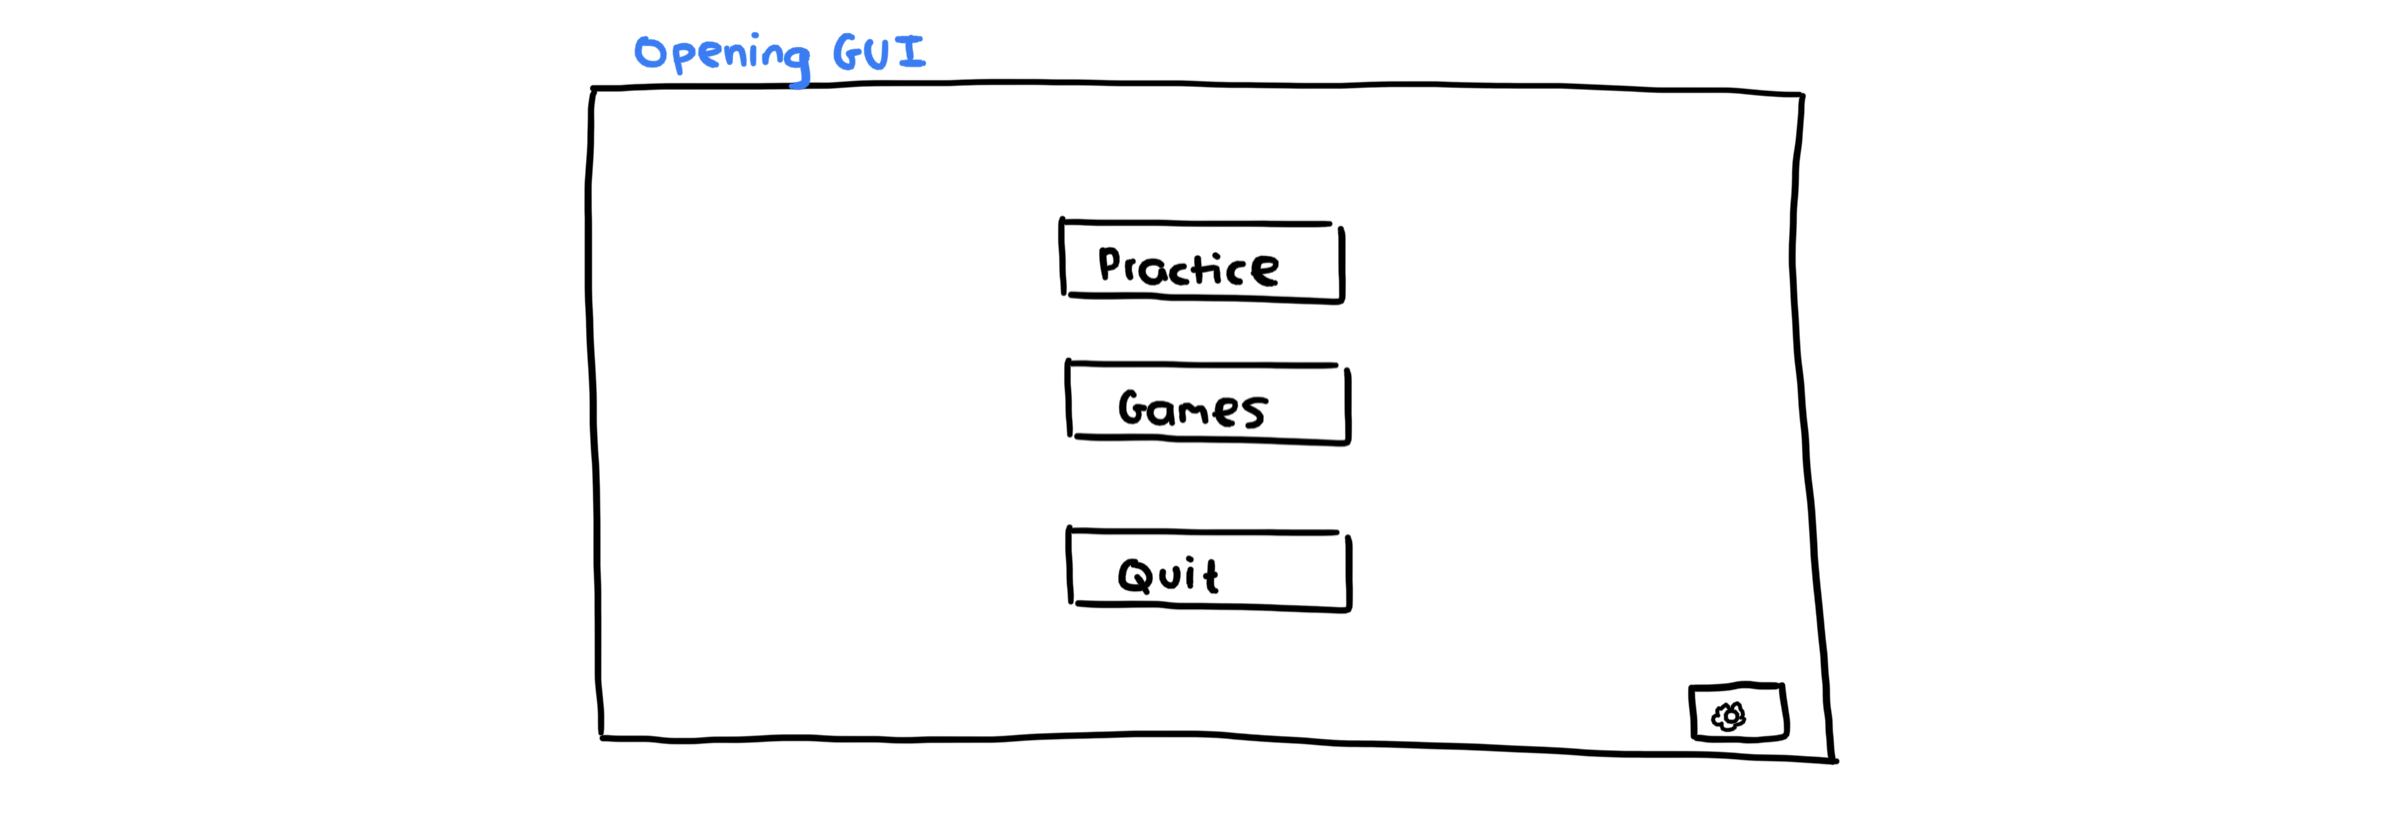 Opening GUI
Practice
Games
Quit